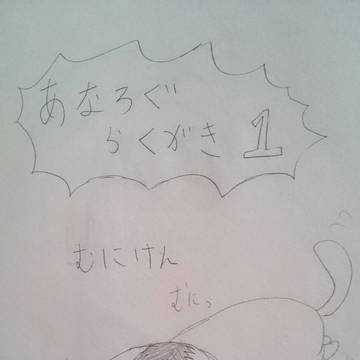 あなろぐ
らくがき 1
むにけん
むにっ